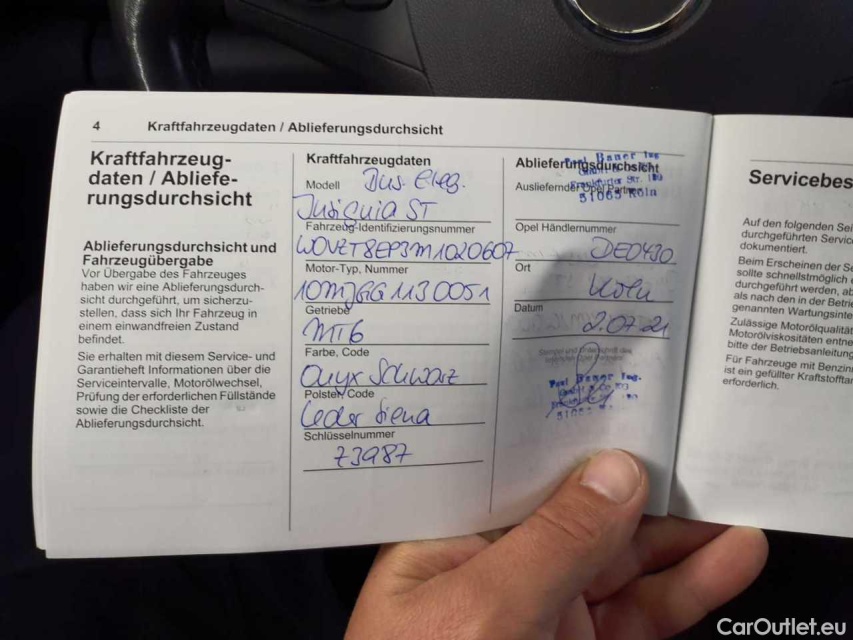 4 Kraftfahrzeugdaten / Ablieferungsdurchsicht
Kraftfahrzeug-
daten / Abliefe-
rungsdurchsicht
Ablieferungsdurchsicht und
Fahrzeugübergabe
Vor Übergabe des Fahrzeuges
haben wir eine Ablieferungsdurch-
sicht durchgeführt, um sicherzu-
stellen, dass sich Ihr Fahrzeug in
einem einwandfreien Zustand
befindet.
Sie erhalten mit diesem Service- und
Garantieheft Informationen über die
Serviceintervalle, Motorölwechsel,
Prüfung der erforderlichen Füllstände
sowie die Checkliste der
Ablieferungsdurchsicht.
Kraftfahrzeugdaten
Modell Bus. Eleg.
Insignia ST
Fahrzeug-Identifizierungsnummer
W0VZT8EP3M1020607
Motor-Typ, Nummer
10MJGG1130051
Getriebe
MT6
Farbe, Code
Onyx Schwarz
Polster, Code
Leder Siena
Schlüsselnummer
73987
Ablieferungsdurchsicht
Ausliefernder Opel Partner
51065 Köln
Opel Händlernummer
DE0430
Ort
Köln
Datum
2.07.21
Paul Bauer Ing.
Servicebes
Auf den folgenden Sei
durchgeführten Servic
dokumentiert.
Beim Erscheinen der Se
sollte schnellstmöglich e
durchgeführt werden, ab
als nach den in der Betrie
genannten Wartungsinte
Zulässige Motorölqualität
Motorölviskositäten entne
bitte der Betriebsanleitung
Für Fahrzeuge mit Benzin
ist ein gefüllter Kraftstoffta
erforderlich.
CarOutlet.eu